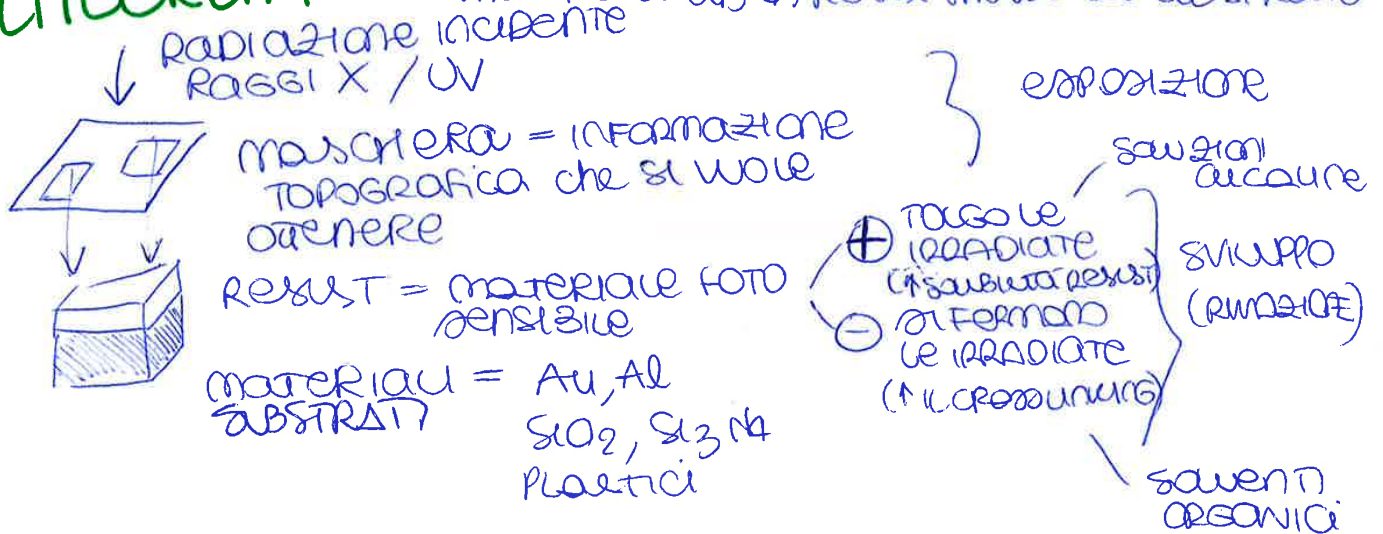 RADIAZIONE INCIDENTE
RAGGI X / UV
MASCHERA = INFORMAZIONE
TOPOGRAFICA che SI VUOLE
OTTENERE
RESIST = MATERIALE FOTO
SENSIBILE
MATERIALI = Au, Al
SUBSTRATI
SiO2, Si3N4
PLASTICI
ESPOSIZIONE
SOLUZIONI
ALCALINE
+ TOLGO LE
IRRADIATE
(↑ SOLUBILITÀ RESIST)
- SI FERMANO
LE IRRADIATE
(↑ IL CROSSLINKING)
SVILUPPO
(RIMOZIONE)
SOLVENTI
ORGANICI